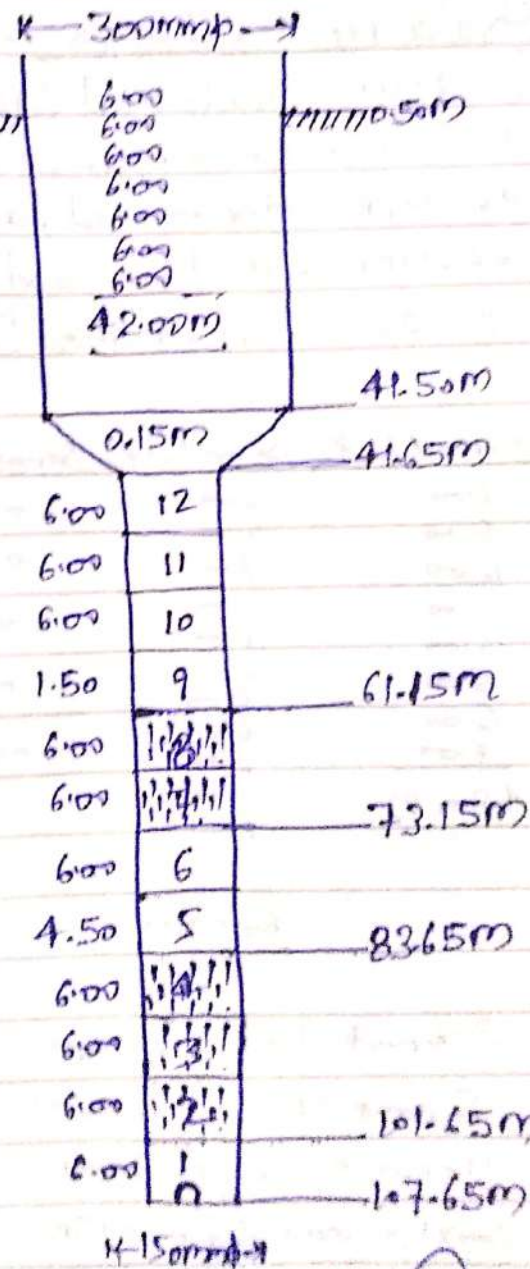 300mmφ
6.00
6.00 0.50m
6.00
6.00
6.00
6.00
6.00
42.00m
41.50m
0.15m
41.65m
6.00 12
6.00 11
6.00 10
1.50 9 61.15m
6.00 8
6.00 7 73.15m
6.00 6
4.50 5 83.65m
6.00 4
6.00 3
6.00 2 101.65m
6.00 1
107.65m
150mmφ